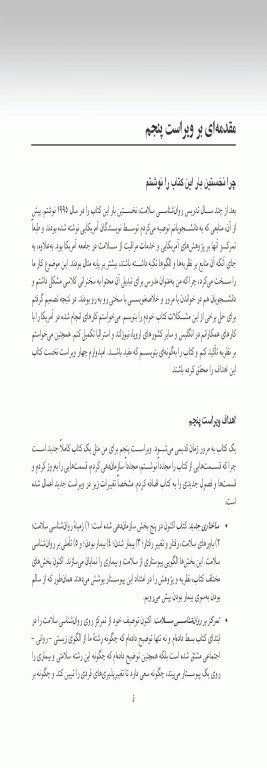 مقدمه‌ای بر ویراست پنجم
چرا نخستین بار این کتاب را نوشتم
بعد از چند سال تدریس روان‌شناسی سلامت، نخستین بار این کتاب را در سال ۱۹۹۵ نوشتم. پیش
از آن، منابعی که به دانشجویانم توصیه می‌کردم توسط نویسندگان آمریکایی نوشته شده بودند و طبعاً
تمرکز آنها بر پژوهش‌های آمریکایی و خدمات مراقبت از سلامت در جامعه آمریکا بود. به‌علاوه، به
جای آنکه آن منابع بر نظریه‌ها و الگوها تکیه داشته باشند، بیشتر بر پایه مثال بودند. این موضوع کار ما
را سخت می‌کرد، چرا که من به‌عنوان مدرس برای تبدیل آن محتوا به سخنرانی کلاسی مشکل داشتم و
دانشجویان هم در خواندن یا مرور و خلاصه‌نویسی با سختی رو به رو بودند. در نتیجه تصمیم گرفتم
برای حل برخی از این مشکلات کتاب خودم را بنویسم. می‌خواستم کارهای انجام شده در آمریکا را با
کارهای همکارانم در انگلیس و سایر کشورهای اروپا، نیوزلند و استرالیا تکمیل کنم. همچنین می‌خواستم
بر نظریه تأکید کنم و کتاب را به‌گونه‌ای بنویسم که مفید باشد. امیدوارم چهار ویراست نخست کتاب
این اهداف را محقق کرده باشند.
اهداف ویراست پنجم
یک کتاب به مرور زمان قدیمی می‌شود. ویراست پنجم برای من مثل یک کتاب کاملاً جدید است
چرا که قسمت‌هایی از کتاب را مجدداً نوشتم، مجدداً سازمان‌دهی کردم، قسمت‌هایی را به‌روز کردم و
قسمت‌ها و فصول جدیدی را به کتاب اضافه کردم. مشخصاً تغییرات زیر در ویراست جدید اعمال شده
است.
• ساختاری جدید. کتاب اکنون در پنج بخش سازمان‌دهی شده است: ۱) زمینه روان‌شناسی سلامت؛
۲) باورهای سلامت، رفتار و تغییر رفتار؛ ۳) بیمار شدن؛ ۴) بیمار بودن؛ و ۵) تأملی بر روان‌شناسی
سلامت. این بخش‌ها الگویی پیوستاری از سلامت و بیماری را نمایان می‌سازند. اکنون بخش‌های
مختلف کتاب، نظریه و پژوهش را در امتداد این پیوستار پوشش می‌دهند، همان‌طور که از سالم
بودن به‌سوی بیمار بودن پیش می‌رویم.
• تمرکز بر روان‌شناسی سلامت. اکنون توصیف خود از تمرکز روی روان‌شناسی سلامت را در
ابتدای کتاب بسط داده‌ام و نه تنها توضیح داده‌ام که چگونه رشته ما از الگوی زیستی - روانی -
اجتماعی مشتق شده است بلکه همچنین توضیح داده‌ام که چگونه این رشته سلامتی و بیماری را
روی یک پیوستار می‌بیند، چگونه سعی دارد تا تغییرپذیری‌های فردی را تبیین کند و چگونه بر